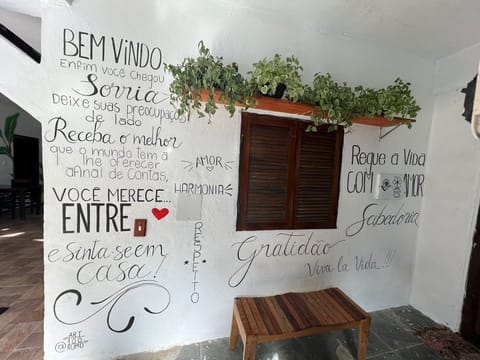 BEM VINDO
ENFIM VOCÊ CHEGOU
Sorria
DEIXE SUAS PREOCUPAÇÕES
DE LADO
Receba o melhor
QUE O MUNDO TEM A
LHE OFERECER
AFINAL DE CONTAS,
VOCÊ MERECE...
ENTRE
e Sinta-se em
casa!
AMOR
HARMONIA
RESPEITO
Gratidão
Viva la Vida!!!
Regue a Vida
COM AMOR
Sabedoria